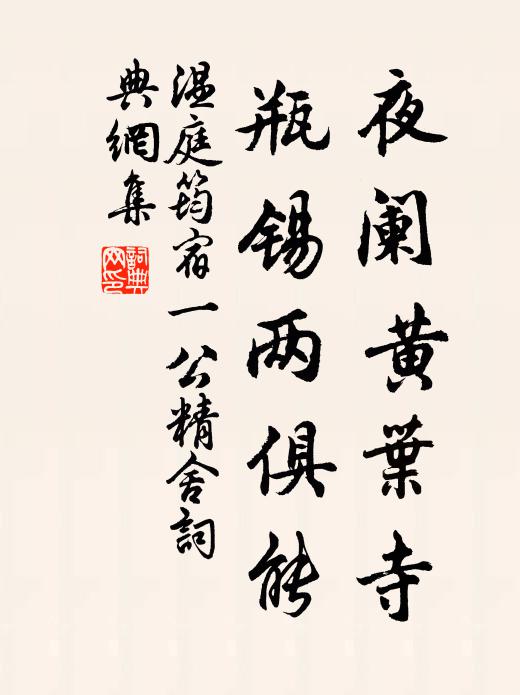 夜阑黄葉寺
瓶锡两俱能
温庭筠宿一公精舍詞
典網集
詞典網印